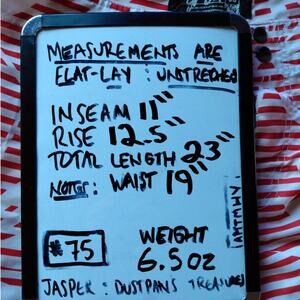 MEASUREMENTS ARE
FLAT-LAY : UNSTRECHED
INSEAM 11"
RISE 12.5"
TOTAL LENGTH 23"
NOTE: WAIST 19"
#75
WEIGHT
6.5 oz
JASPER : DUSTPANS TREASURES